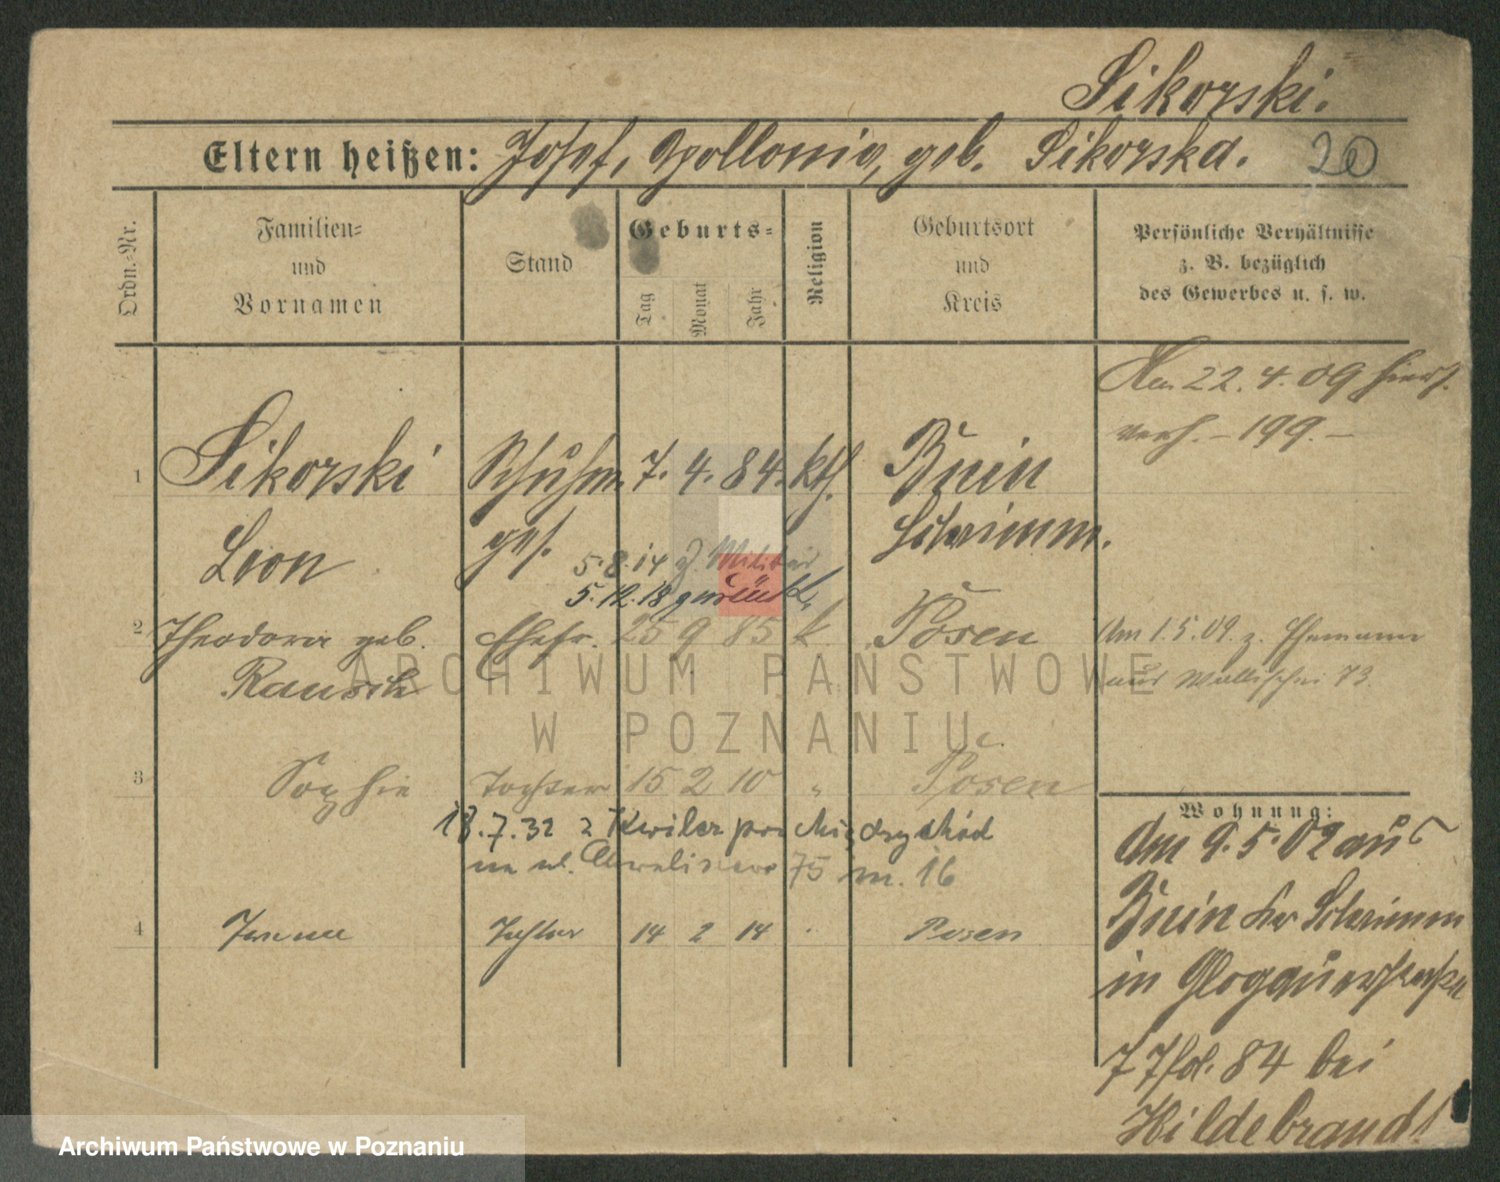 Sikorski.
Eltern heißen: Josef, Apollonia, geb. Sikorska.
20
Ordn.-Nr.
Familien-
und
Vornamen
Stand
Geburts-
Tag
Monat
Jahr
Religion
Geburtsort
und
Kreis
Persönliche Verhältnisse
z. B. bezüglich
des Gewerbes u. s. w.
Am 22.4.09 hiers.
verh. – 199. –
1 Sikorski Schuhm. 7. 4. 84. kth. Bnin
Leon ges. Schrimm.
5.8.14 z. Militär
5.12.18 zurück.
2 Theodora geb. Ehefr. 25 9 85 k Posen
Am 1.5.09. z. Ehemann
Rausch
aus Wallischei 73.
3 Sophie Tochter 15 2 10 " Posen
18.7.32 z Kwilcz pow Międzychód
na ul. 75 m. 16
4 Irene Tochter 14 2 14 Posen
Wohnung:
Am 9.5.02 aus
Bnin Kr Schrimm
in Glogauerstraße
77 84 bei
Hildebrandt
ARCHIWUM PAŃSTWOWE
W POZNANIU
Archiwum Państwowe w Poznaniu